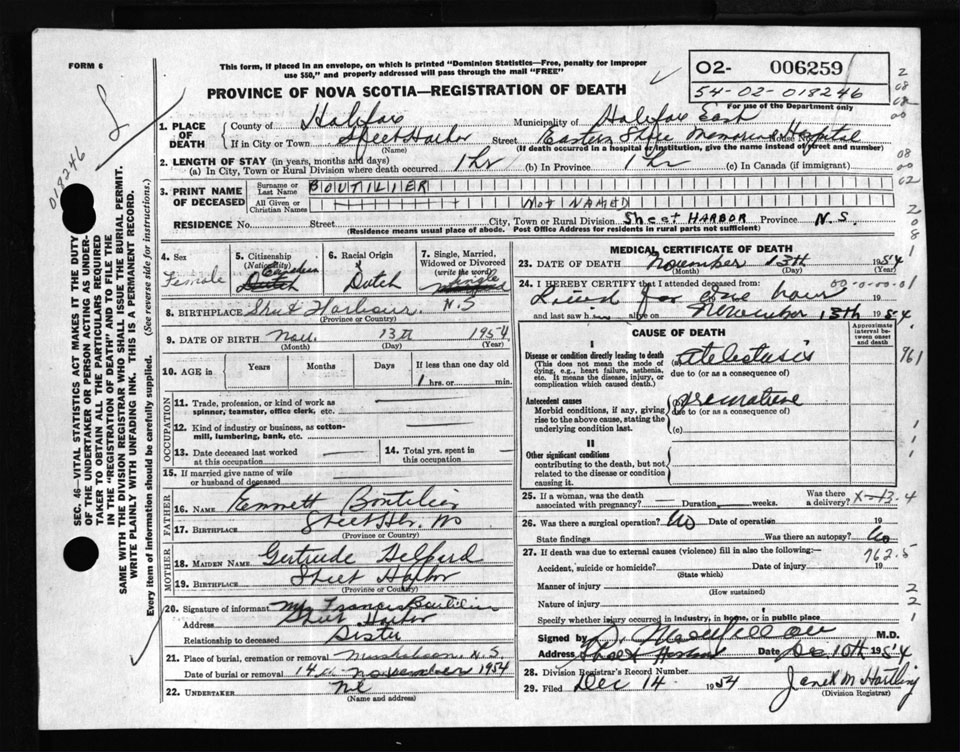 FORM 6
This form, if placed in an envelope, on which is printed "Dominion Statistics—Free, penalty for improper
use $50," and properly addressed will pass through the mail "FREE"
PROVINCE OF NOVA SCOTIA—REGISTRATION OF DEATH
02- 006259
54-02-018246
For use of the Department only
018246
SEC. 46—VITAL STATISTICS ACT MAKES IT THE DUTY
OF THE UNDERTAKER OR PERSON ACTING AS UNDER-
TAKER TO OBTAIN ALL THE PARTICULARS REQUIRED
IN THE "REGISTRATION OF DEATH" AND TO FILE THE
SAME WITH THE DIVISION REGISTRAR WHO SHALL ISSUE THE BURIAL PERMIT.
WRITE PLAINLY WITH UNFADING INK. THIS IS A PERMANENT RECORD.
Every item of information should be carefully supplied. (See reverse side for instructions.)
1. PLACE OF DEATH
County of Halifax Municipality of Halifax East
If in City or Town Sheet Harbor Street Eastern Shore Memorial Hospital
(Name) (If death occurred in a hospital or institution, give the name instead of street and number)
2. LENGTH OF STAY (in years, months and days)
(a) In City, Town or Rural Division where death occurred 1 hr (b) In Province 1 hr (c) In Canada (if immigrant)
3. PRINT NAME OF DECEASED
Surname or Last Name BOUTILIER
All Given or Christian Names NOT NAMED
RESIDENCE No. Street City, Town or Rural Division Sheet HARBOR Province N.S.
(Residence means usual place of abode. Post Office Address for residents in rural parts not sufficient)
4. Sex Female
5. Citizenship (Nationality) Canadian
6. Racial Origin Dutch
7. Single, Married, Widowed or Divorced (write the word) Single
8. BIRTHPLACE Sheet Harbour N.S
(Province or Country)
9. DATE OF BIRTH Nov. 13th 1954
(Month) (Day) (Year)
10. AGE in Years Months Days If less than one day old
1 hrs. or min.
OCCUPATION
11. Trade, profession, or kind of work as
spinner, teamster, office clerk, etc.
12. Kind of industry or business, as cotton-
mill, lumbering, bank, etc.
13. Date deceased last worked
at this occupation
14. Total yrs. spent in
this occupation
15. If married give name of wife
or husband of deceased
FATHER
16. NAME Emmett Boutilier
17. BIRTHPLACE Sheet Hbr. NS
(Province or Country)
MOTHER
18. MAIDEN NAME Gertrude
19. BIRTHPLACE Sheet Harbor
(Province or Country)
20. Signature of informant Francis Boutilier
Address Sheet Harbor
Relationship to deceased Sister
21. Place of burial, cremation or removal N.S.
Date of burial or removal 14 November 1954
22. UNDERTAKER Nil
MEDICAL CERTIFICATE OF DEATH
23. DATE OF DEATH November 13th 1954
(Month) (Day) (Year)
24. I HEREBY CERTIFY that I attended deceased from:
for one hour 19
and last saw h alive on November 13th 1954
CAUSE OF DEATH
Approximate interval between onset and death
I
Disease or condition directly leading to death
(This does not mean the mode of
dying, e.g., heart failure, asthenia,
etc. It means the disease, injury, or
complication which caused death.)
atelectasis
due to (or as a consequence of)
761
Antecedent causes
Morbid conditions, if any, giving
rise to the above cause, stating the
underlying condition last.
due to (or as a consequence of)
(c)
II
Other significant conditions
contributing to the death, but not
related to the disease or condition
causing it.
25. If a woman, was the death
associated with pregnancy? Duration weeks.
Was there a delivery?
26. Was there a surgical operation? No Date of operation 19
State findings Was there an autopsy? No
27. If death was due to external causes (violence) fill in also the following:—
762.5
Accident, suicide or homicide? Date of injury 19
(State which)
Manner of injury
(How sustained)
Nature of injury
Specify whether injury occurred in industry, in home, or in public place
Signed by M.D.
Address Sheet Harbour Date Dec 10th 1954
28. Division Registrar's Record Number
29. Filed Dec 14 1954 Janet M Hartling
(Division Registrar)